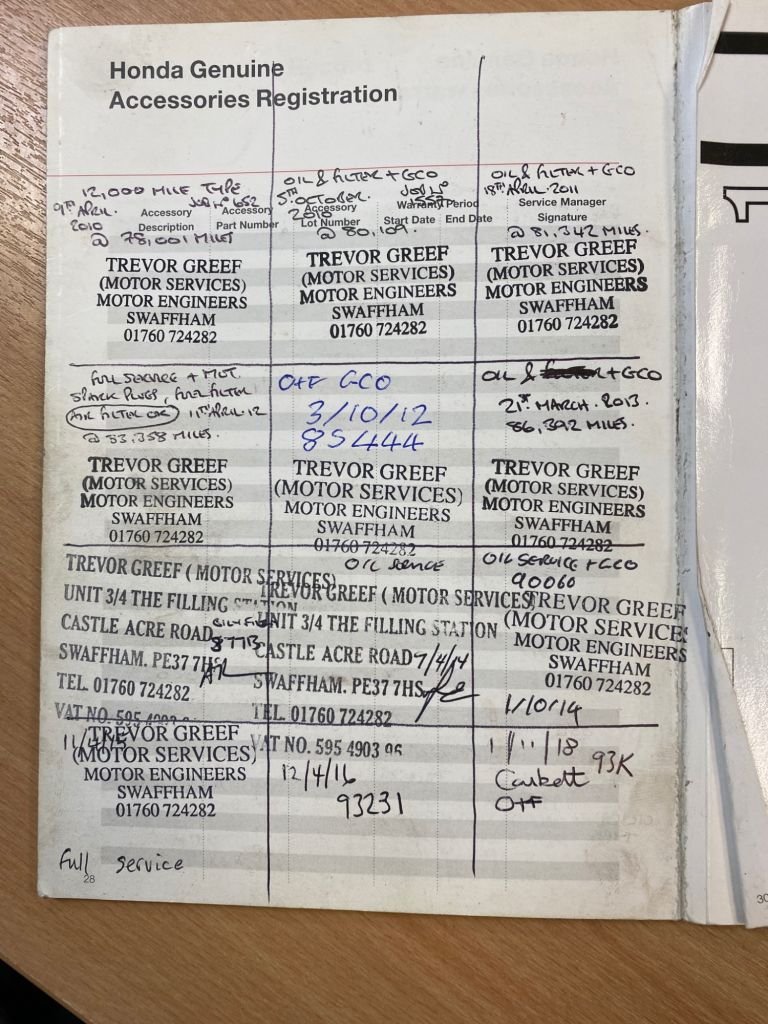 Honda Genuine
Accessories Registration
12,000 MILE TYPE
JOB Nº 652
9TH APRIL.
2010
Accessory Description
Accessory Part Number
@ 78,001 MILES
TREVOR GREEF
(MOTOR SERVICES)
MOTOR ENGINEERS
SWAFFHAM
01760 724282
OIL & FILTER + GCO
5TH OCTOBER.
JOB Nº
2010
Accessory Lot Number
Warranty Period
Start Date End Date
@ 80,109.
TREVOR GREEF
(MOTOR SERVICES)
MOTOR ENGINEERS
SWAFFHAM
01760 724282
OIL & FILTER + GCO
18TH APRIL. 2011
Service Manager
Signature
@ 81,342 MILES.
TREVOR GREEF
(MOTOR SERVICES)
MOTOR ENGINEERS
SWAFFHAM
01760 724282
FULL SERVICE + MOT.
SPARK PLUGS, FUEL FILTER
AIR FILTER 11TH APRIL 12
@ 83,358 MILES.
TREVOR GREEF
(MOTOR SERVICES)
MOTOR ENGINEERS
SWAFFHAM
01760 724282
O+F GCO
3/10/12
85444
TREVOR GREEF
(MOTOR SERVICES)
MOTOR ENGINEERS
SWAFFHAM
01760 724282
OIL & + GCO
21ST MARCH. 2013.
86,392 MILES.
TREVOR GREEF
(MOTOR SERVICES)
MOTOR ENGINEERS
SWAFFHAM
01760 724282
TREVOR GREEF (MOTOR SERVICES)
UNIT 3/4 THE FILLING STATION
CASTLE ACRE ROAD
SWAFFHAM. PE37 7HS
TEL. 01760 724282
VAT NO. 595 4903
OIL SERVICE
TREVOR GREEF (MOTOR SERVICES)
UNIT 3/4 THE FILLING STATION
CASTLE ACRE ROAD 7/4/14
SWAFFHAM. PE37 7HS
TEL. 01760 724282
VAT NO. 595 4903 96
OIL SERVICE + GCO
90060
TREVOR GREEF
(MOTOR SERVICES
MOTOR ENGINEERS
SWAFFHAM
01760 724282
1/10/14
TREVOR GREEF
(MOTOR SERVICES)
MOTOR ENGINEERS
SWAFFHAM
01760 724282
Full service
12/4/16
93231
1/11/18 93K
O+F
28
30